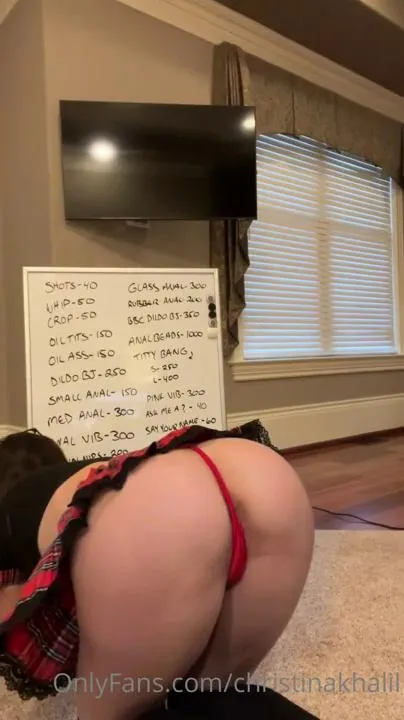 SHOTS-40
WHIP-50
CROP-50
OIL TITS-150
OIL ASS-150
DILDO BJ-250
SMALL ANAL-150
MED ANAL-300
NAL VIB-300
GLASS ANAL-300
RUBBER ANAL-200
BBC DILDO BJ-350
ANAL BEADS-1000
TITTY BANG
S-250
L-400
PINK VIB-300
ASK ME A?-40
SAY YOUR NAME-60
OnlyFans.com/christinakhalil